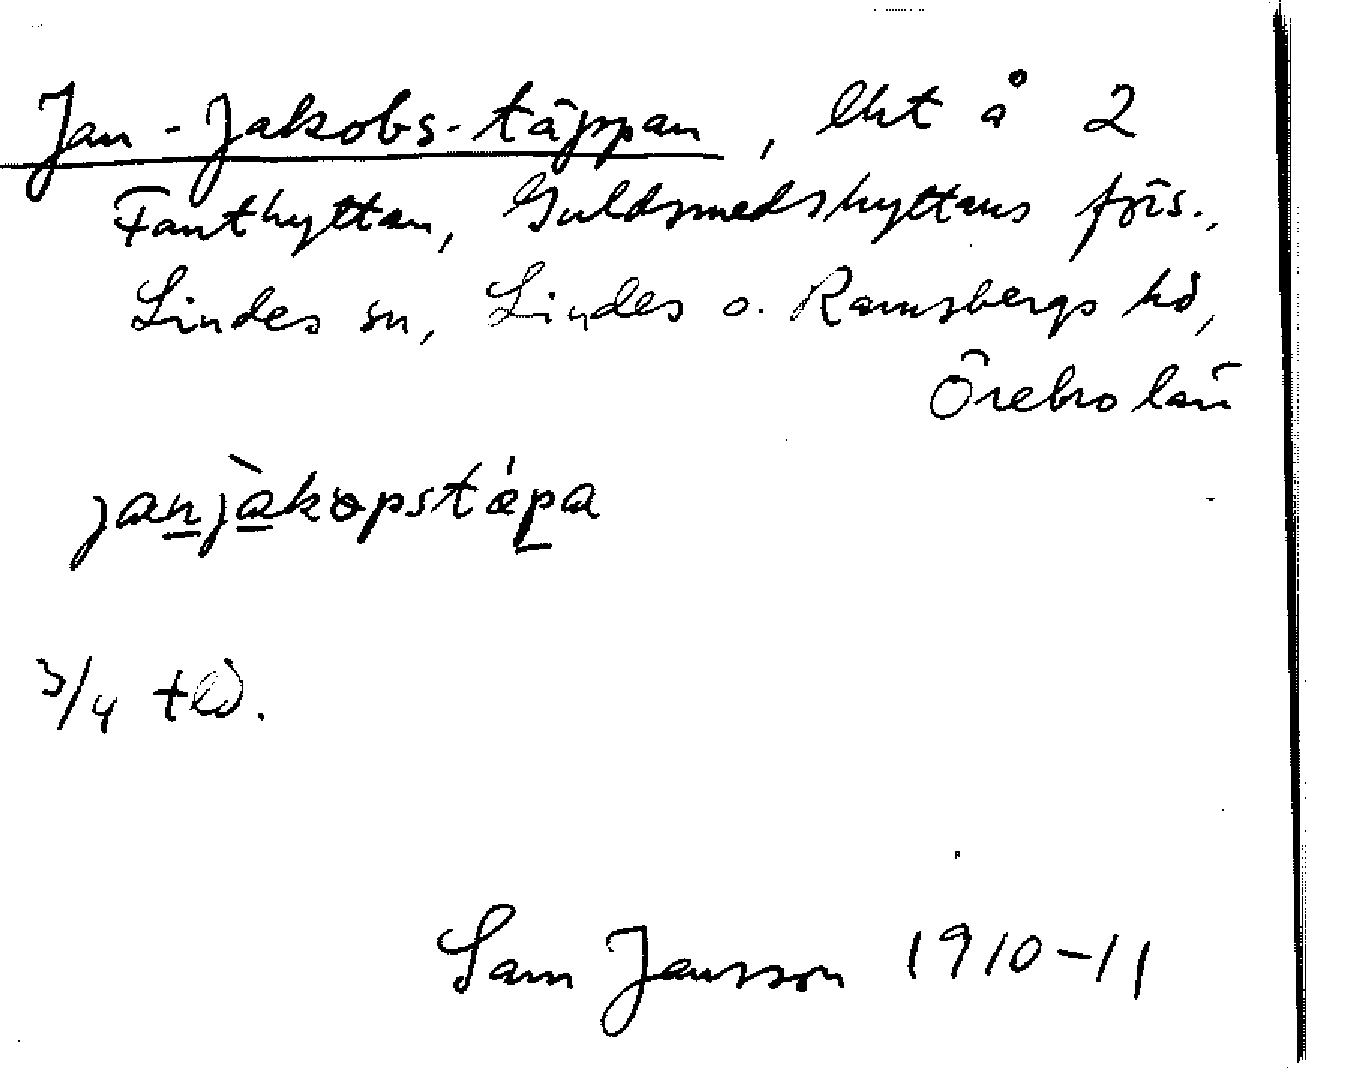 Jan-Jakobs-täppan, lht å 2
Fanthyttan, Guldsmedshyttans förs.,
Lindes sn, Lindes o. Ramsbergs hd,
Örebro län
janjàkopstǽpa
3/4 tld.
Sam Jansson 1910-11